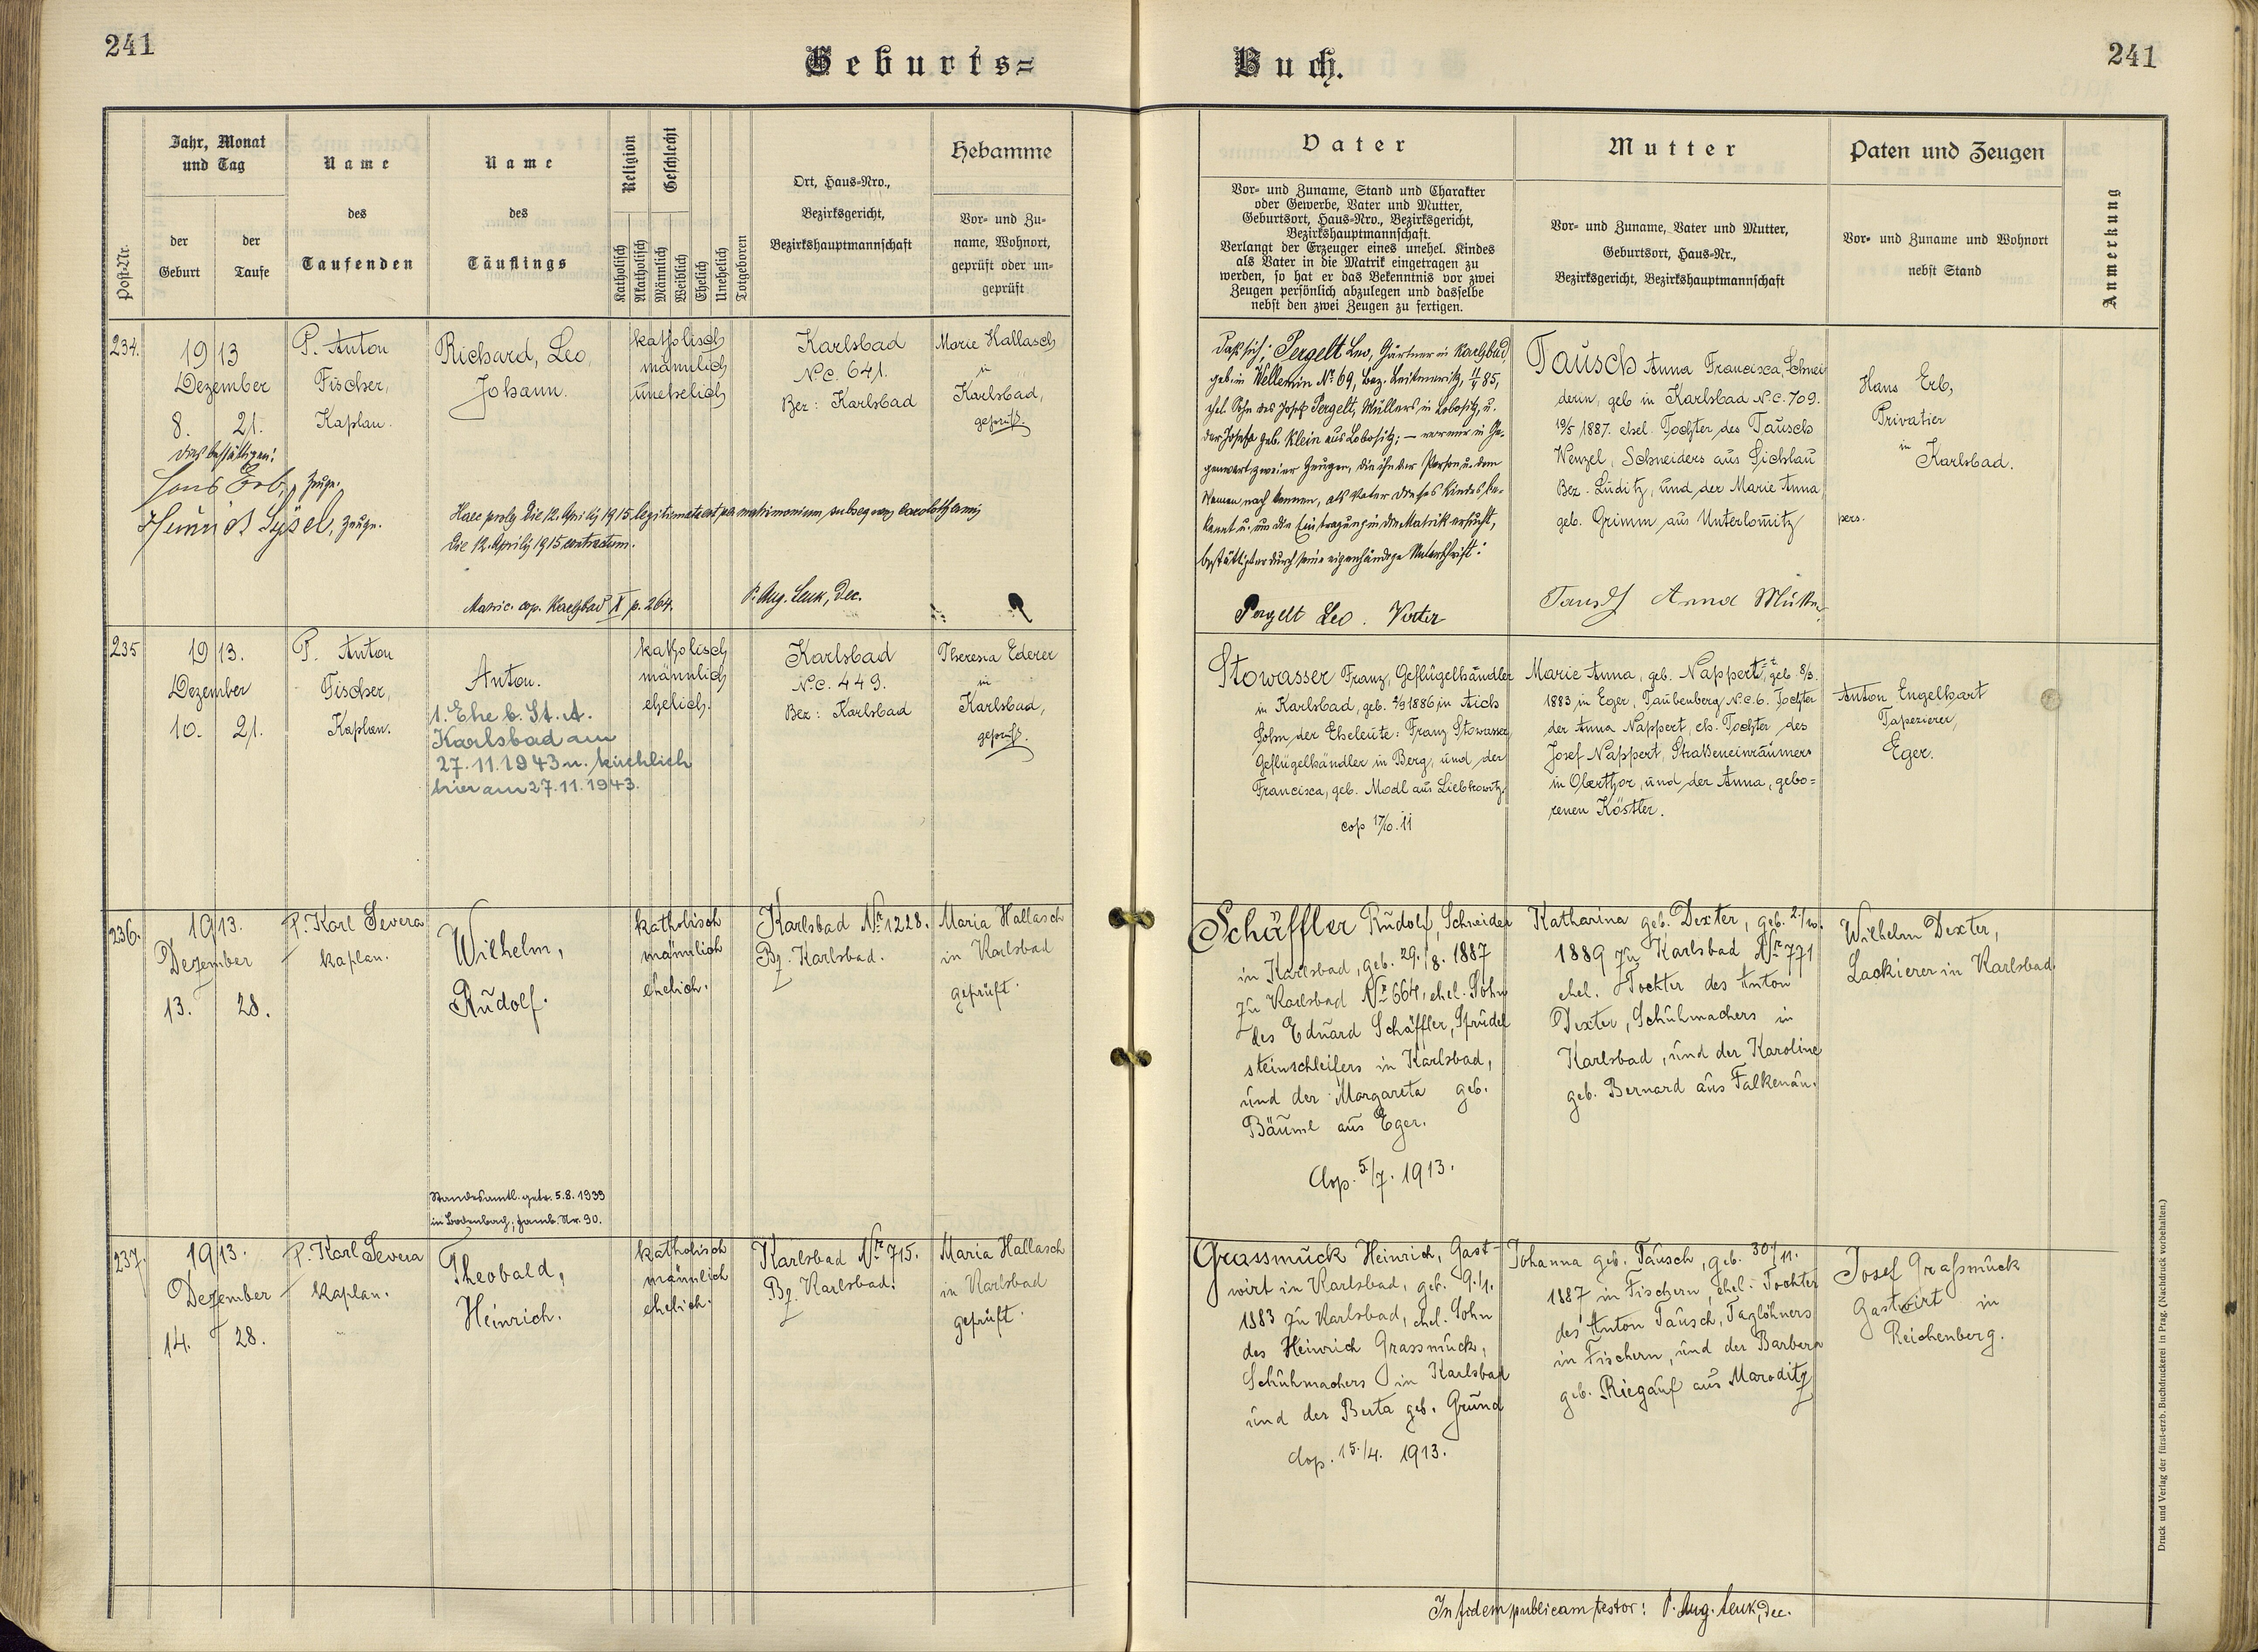 241
Geburts=
Buch.
241
Post-Nr.
Jahr, Monat
und Tag
der
Geburt
der
Taufe
Name
des
Taufenden
Name
des
Täuflings
Religion
Geschlecht
Katholisch
Akatholisch
Männlich
Weiblich
Ehelich
Unehelich
Totgeboren
Ort, Haus-Nro.,
Bezirksgericht,
Bezirkshauptmannschaft
Hebamme
Vor- und Zu-
name, Wohnort,
geprüft oder un-
geprüft
Vater
Vor- und Zuname, Stand und Charakter
oder Gewerbe, Vater und Mutter,
Geburtsort, Haus-Nro., Bezirksgericht,
Bezirkshauptmannschaft.
Verlangt der Erzeuger eines unehel. Kindes
als Vater in die Matrik eingetragen zu
werden, so hat er das Bekenntnis vor zwei
Zeugen persönlich abzulegen und dasselbe
nebst den zwei Zeugen zu fertigen.
Mutter
Vor- und Zuname, Vater und Mutter,
Geburtsort, Haus-Nr.,
Bezirksgericht, Bezirkshauptmannschaft
Paten und Zeugen
Vor- und Zuname und Wohnort
nebst Stand
Anmerkung
234.
1913
Dezember
8. 21.
dies bestättigen:
Hans Erb, Zeuge.
Heinrich Sysel, Zeuge.
P. Anton
Fischer,
Kaplan.
Richard, Leo,
Johann.
katholisch
männlich
unehelich
Karlsbad
N.C. 641.
Bez: Karlsbad
Marie Hallasch
in
Karlsbad,
geprüft.
Haec proles die 12. Aprilis 1915 legitimata est per matrimonium subsequens
die 12. Aprilis 1915 contractum.
Matric. cop. Karlsbad X p. 264.
P. Aug. Leuk, Dec.
Daß sich; Pergelt Leo, Gärtner in Karlsbad,
geb in Wellemin No 69, Bez. Leitmeritz, 85,
ehel. Sohn des Josef Pergelt, Müllers in Lobositz, u.
der Josefa geb. Klein aus Lobositz; — vor mir in Ge-
genwart zweier Zeugen, die ihn der Person u. dem
Namen nach kennen, als Vater dieses Kindes be-
kannt u. um die Eintragung in die Matrik ersucht,
bestättigt er durch seine eigenhändige Unterschrift:
Pergelt Leo. Vater
Tausch Anna Francisca, Schnei
derin, geb in Karlsbad N.C. 709.
19/5 1887. ehel. Tochter des Tausch
Wenzel, Schneiders aus Sichlau
Bez. Luditz, und der Marie Anna,
geb. Grimm aus Unterlomitz
Tausch Anna Mutter
Hans Erb,
Privatier
in
Karlsbad.
pers.
235
1913.
Dezember
10. 21.
P. Anton
Fischer,
Kaplan.
Anton.
1. Ehe b. St. A.
Karlsbad am
27.11.1943 u. kirchlich
hier am 27.11.1943.
katholisch
männlich
ehelich.
Karlsbad
N.C. 449.
Bez: Karlsbad
Theresia Ederer
in
Karlsbad,
geprüft.
Stowasser Franz, Geflügelhändler
in Karlsbad, geb. 2/9 1886 in Aich
Sohn der Eheleute: Franz Stowasser,
Geflügelhändler in Berg, und der
Francisca, geb. Modl aus Liebkowitz.
cop 17/10. 11
Marie Anna, geb. Nappert, geb. 8/3.
1883 in Eger, Taubenberg N.C. 6. Tochter
der Anna Nappert, eh. Tochter des
Josef Nappert, Straßeneinräumers
in Oberthor, und der Anna, gebo=
renen Köstler.
Anton Engelhart
Tapezierer,
Eger.
236.
1913.
Dezember
13. 28.
P. Karl Severa
Kaplan.
Wilhelm,
Rudolf.
Standesamtl. getr. 5.8.1939
in Bodenbach; Famb. Nr. 90.
katholisch
männlich
ehelich.
Karlsbad Nr 1228.
Bz. Karlsbad.
Maria Hallasch
in Karlsbad
geprüft.
Schäffler Rudolf, Schneider
in Karlsbad, geb. 29./8. 1887
zu Karlsbad Nr 664, ehel. Sohn
des Eduard Schäffler, Sprudel
steinschleifers in Karlsbad,
und der Margareta geb.
Bäuml aus Eger.
Cop. 5./7. 1913.
Katharina geb. Dexter, geb. 2./10.
1889 zu Karlsbad Nr 771
ehel. Tochter des Anton
Dexter, Schuhmachers in
Karlsbad, und der Karoline
geb. Bernard aus Falkenau.
Wilhelm Dexter,
Lackierer in Karlsbad.
237.
1913.
Dezember
14. 28.
P. Karl Severa
Kaplan.
Theobald,
Heinrich.
katholisch
männlich
ehelich.
Karlsbad Nr 715.
Bz. Karlsbad.
Maria Hallasch
in Karlsbad
geprüft.
Grassmuck Heinrich, Gast-
wirt in Karlsbad, geb. 9./1.
1883 zu Karlsbad, ehel. Sohn
des Heinrich Grassmuck,
Schuhmachers in Karlsbad
und der Berta geb. Grund
Cop. 15./4. 1913.
Johanna geb. Tausch, geb. 30./11.
1887 in Fischern, ehel. Tochter
des Anton Tausch, Taglöhners
in Fischern, und der Barbara
geb. Riegauf aus Maroditz
Josef Graßmuck
Gastwirt in
Reichenberg.
In fidem publicam testor: P. Aug. Leuk, Dec.
Druck und Verlag der fürst-erzb. Buchdruckerei in Prag. (Nachdruck vorbehalten.)